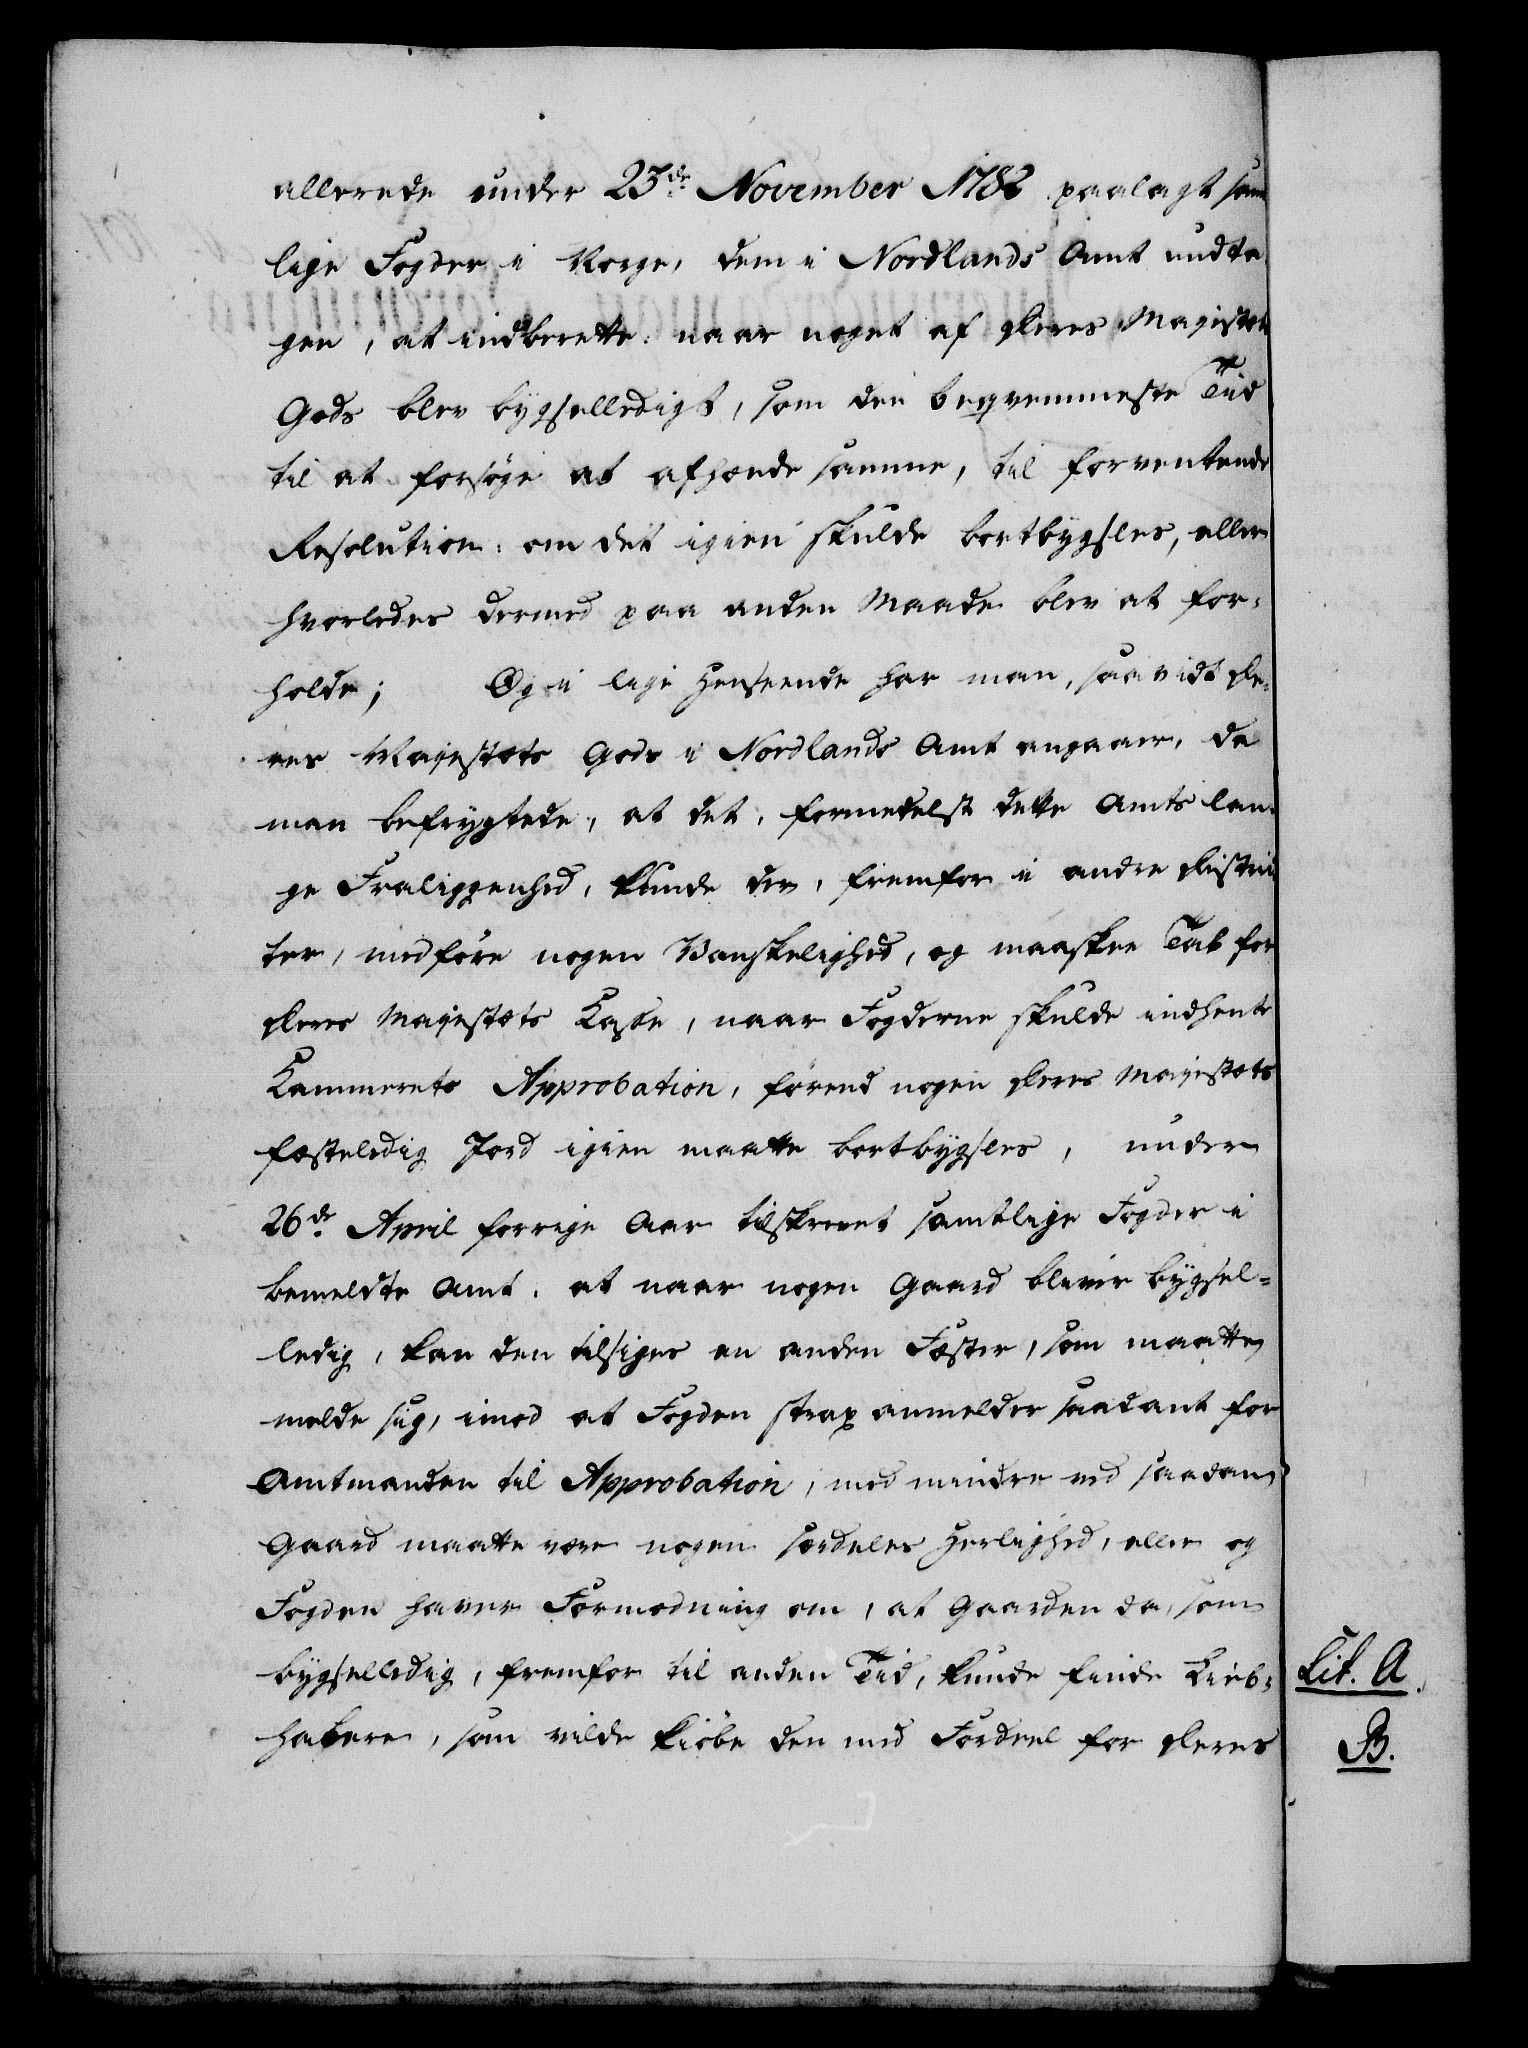 allerede under 23de November 1782 paalagt sam
lige Fogder i Norge, dem i Nordlands Amt undta
gen, at indberette: naar noget af Deres Majestæts
Gods blev bygselledigt, som den beqvemmeste Tiid
til at forsøge at afhænde samme, til forventende
Resolution: om det igien skulde bortbygsles, eller
hvorledes dermed paa anden Maade blev at for-
holde; Og i lige Henseende har man, saavidt De-
res Majestæts Gods i Nordlands Amt angaaer, da
man befrygtede, at det, formedelst dette Amts lan-
ge Fraliggenhed, kunde der, fremfor i andre Distric
ter, medføre nogen Vanskelighed, og maaskee Tab for
Deres Majestæts Casse, naar Fogderne skulde indhente
Cammerets Approbation, førend nogen Deres Majestæts
fæsteledig Jord igien maatte bortbygsles, under
26de April forrige Aar tilskrevet samtlige Fogder i
bemeldte Amt, at naar nogen Gaard bliver bygsel-
ledig, kan den tilsiges en anden Fæster, som maatte
melde sig, imod at Fogden strax anmelder saadant for
Amtmanden til Approbation, med mindre ved saadan
Gaard maatte være nogen særdeles Herlighed, eller og
Fogden haver Formodning om, at Gaarden da, som
bygselledig, fremfor til anden Tiid, kunde finde Lieb-
habere, som vilde kiöbe den med Fordeel for Deres
Lit. A.
B.